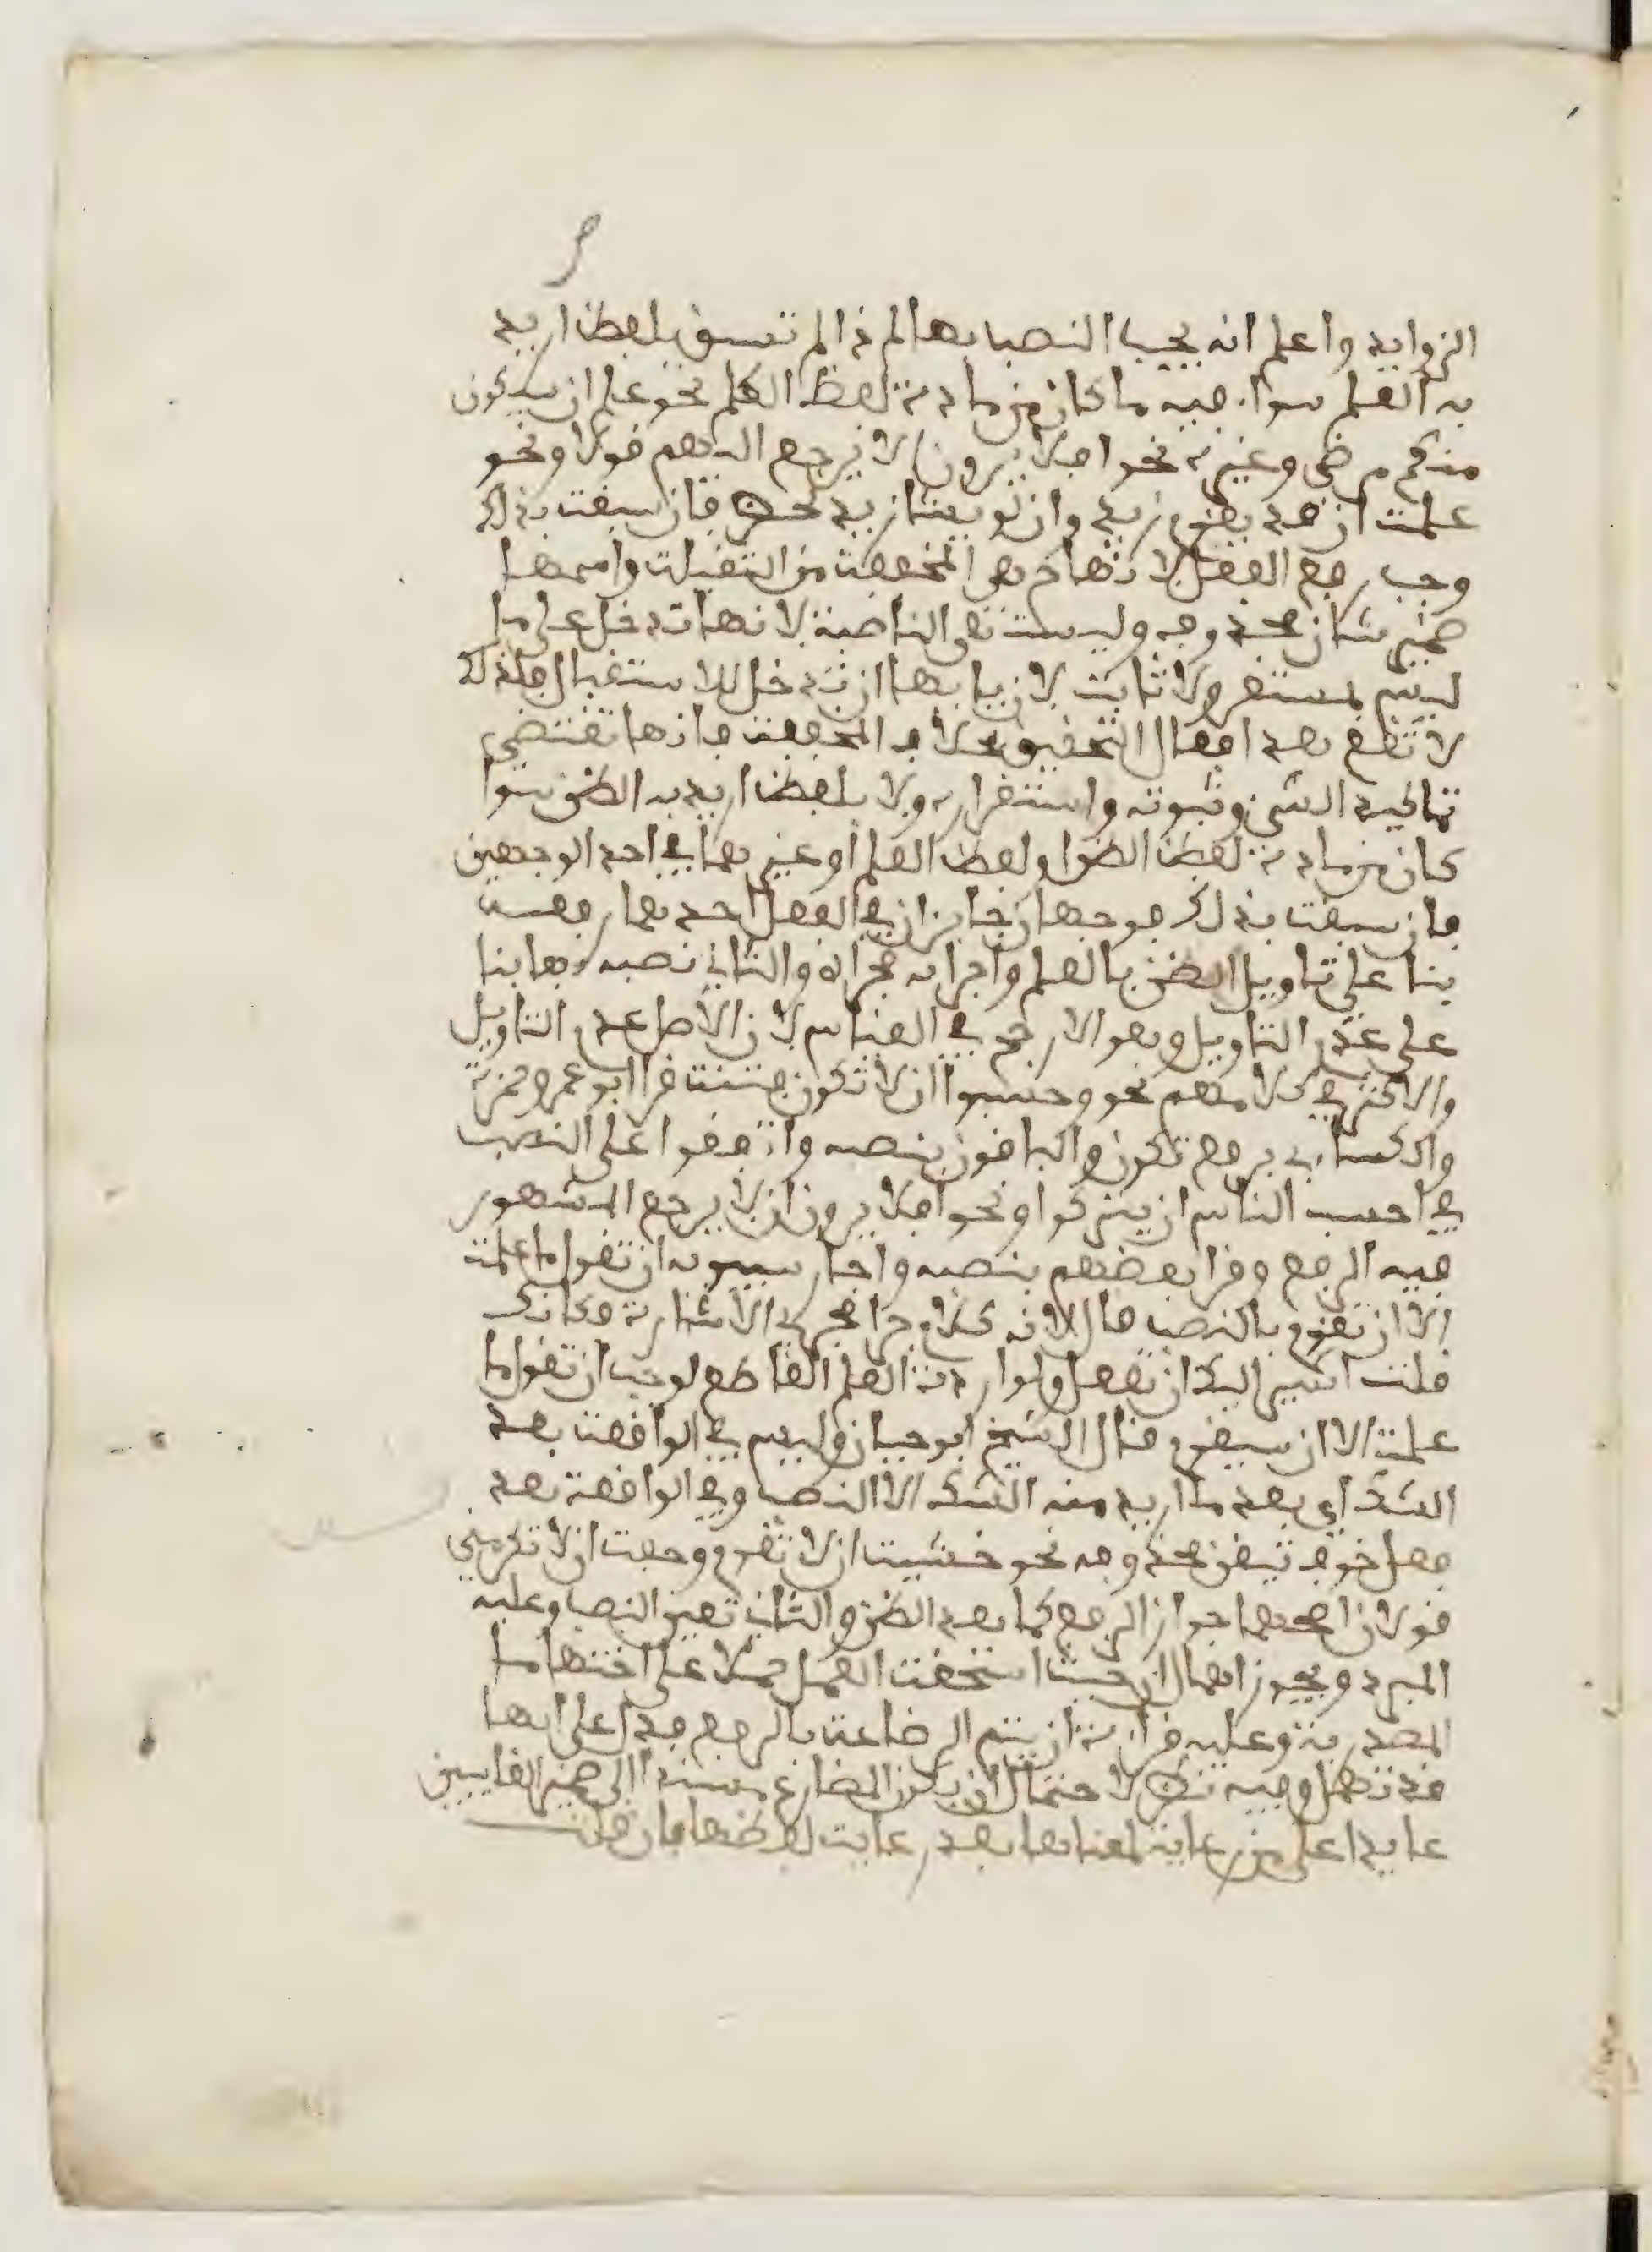 الزوايد واعلم انه يجب النصب بها لم‍ ذا لم تسبق بلفظ اريد
به العلم سواء فيه ما كان من مادة لفظ العلم نحو علم ان سيكون
منكم مرضى وغيره نحو افلا يرون الا يرجع اليهم قولا ونحو
علمت ان قد يقوم زيد وان لو يشا زيد فان سبقت بذلك
وجب رفع الفعل لانها ح هي المخففة من الثقيلة واسمها
ضمير شان محذوف وليست هي الناصبة لانها تدخل على ما
ليس بمستقر ولا ثابت لان بابها ان تدخل للاستقبال فلذلك
لا تقع بعد افعال التحقيق بخلاف المخففة فانها تقتضي
تاكيد الشي وثبوته واستقراره ولا بلفظ اريد به الظن سوا
كان من مادة لفظ الظن او لفظ العلم او غيرهما في احد الوجهين
فان سبقت بذلك فوجهان جايزان في الفعل احدهما رفعه
بنا على تاويل الظن بالعلم واجرايه مجراه والثاني نصبه بها بنا
على عدم التاويل وهو الارجح في القياس لان الاصل عدم التاويل
والاكثر في كلامهم نحو وحسبوا ان لا تكون فتنة قرا ابو عمرو وحمزة
والكساءي برفع تكون والباقون بنصبه واتفقوا على النصب
في احسب الناس ان يتركوا ونحو افلا يرون ان لا يرجع المشهور
فيه الرفع وقرا بعضهم بنصبه واجاز سيبويه ان تقول ما علمت
الا ان تقوم بالنصب قال لانه كلام جرا مجرى الاشارة فكانك
قلت اشير اليك ان تفعل ولو اردت العلم القاطع لوجب ان تقول ما
علمت الا ان سيقوم وقال الشيخ ابو حيان وليس في الواقعة بعد
الشك اي بعد ما اريد منه الشك الا النصب وفي الواقعة بعد
فعل خوف تيقن محذوفه نحو خشيت ان لا تقوم وخفت ان لا تكرمني
قولان اصحهما جواز الرفع كما بعد الظن والثاني تعين النصب وعليه
المبرد ويجوز اهمال ان حيث استحقت العمل حملا على اختها ما
المصدرية وعليه قراءة ان يتم الرضاعة بالرفع فدل على انها
قد تهمل وفيه نظر لاحتمال ان يكون المضارع مسندا الى ضمير الغايبين
عايدا على من رعاية لمعناها بعد رعاية لفظها فان قلت